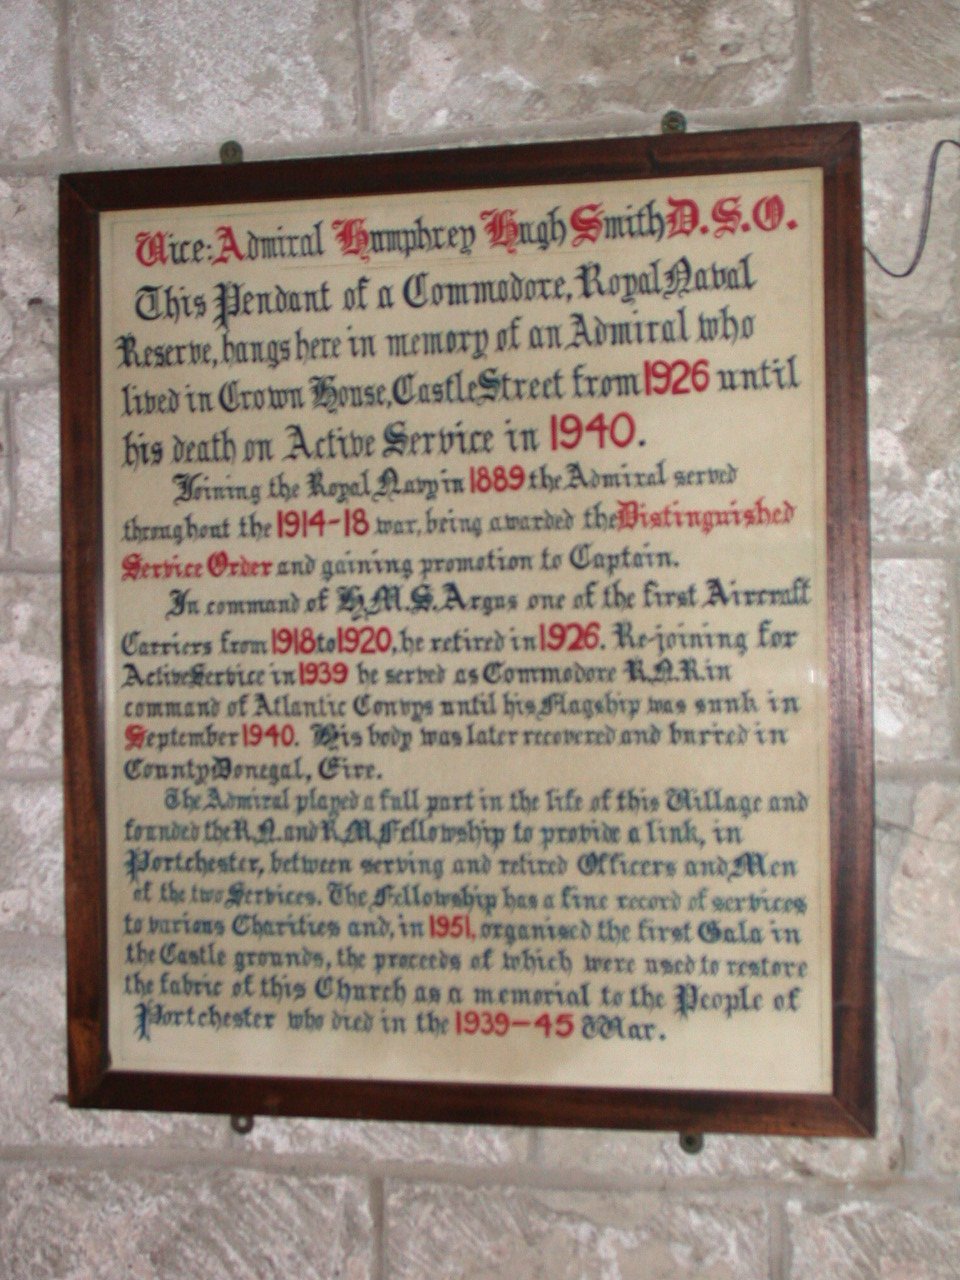 Vice:Admiral Humphrey Hugh Smith D.S.O.
This Pendant of a Commodore, Royal Naval
Reserve, hangs here in memory of an Admiral who
lived in Crown House, Castle Street from 1926 until
his death on Active Service in 1940.
Joining the Royal Navy in 1889 the Admiral served
throughout the 1914-18 war, being awarded the Distinguished
Service Order and gaining promotion to Captain.
In command of H.M.S. Argus one of the first Aircraft
Carriers from 1918 to 1920, he retired in 1926. Re-joining for
Active Service in 1939 he served as Commodore R.N.R. in
command of Atlantic Convys until his Flagship was sunk in
September 1940. His body was later recovered and burried in
County Donegal, Eire.
The Admiral played a full part in the life of this Village and
founded the R.N. and R.M. Fellowship to provide a link, in
Portchester, between serving and retired Officers and Men
of the two Services. The Fellowship has a fine record of services
to various Charities and, in 1951, organised the first Gala in
the Castle grounds, the proceeds of which were used to restore
the fabric of this Church as a memorial to the People of
Portchester who died in the 1939-45 War.